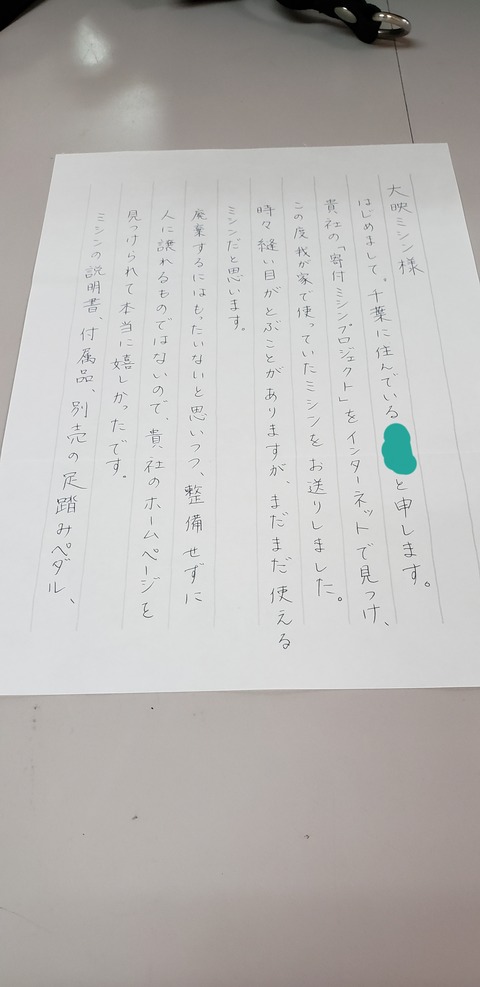 大映ミシン様
はじめまして。千葉に住んでいる と申します。
貴社の「寄付ミシンプロジェクト」をインターネットで見つけ、
この度我が家で使っていたミシンをお送りしました。
時々縫い目がとぶことがありますが、まだまだ使える
ミシンだと思います。
廃棄するにはもったいないと思いつつ、整備せずに
人に譲れるものではないので、貴社のホームページを
見つけられて本当に嬉しかったです。
ミシンの説明書、付属品、別売の足踏みペダル、